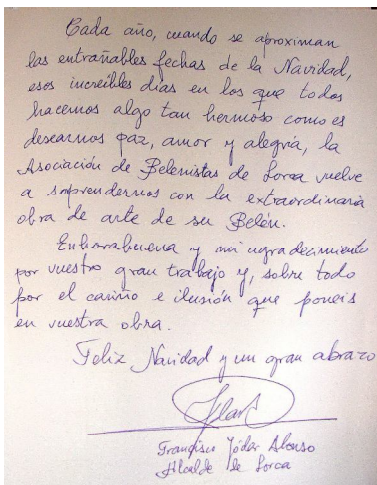 Cada año, cuando se aproximan
las entrañables fechas de la Navidad,
esos increíbles días en los que todos
hacemos algo tan hermoso como es
desearnos paz, amor y alegría, la
Asociación de Belenistas de Lorca vuelve
a sorprendernos con la extraordinaria
obra de arte de su Belén.
Enhorabuena y mi agradecimiento
por vuestro gran trabajo y, sobre todo
por el cariño e ilusión que poneis
en vuestra obra.
Feliz Navidad y un gran abrazo
Francisco Jódar Alonso
Alcalde de Lorca